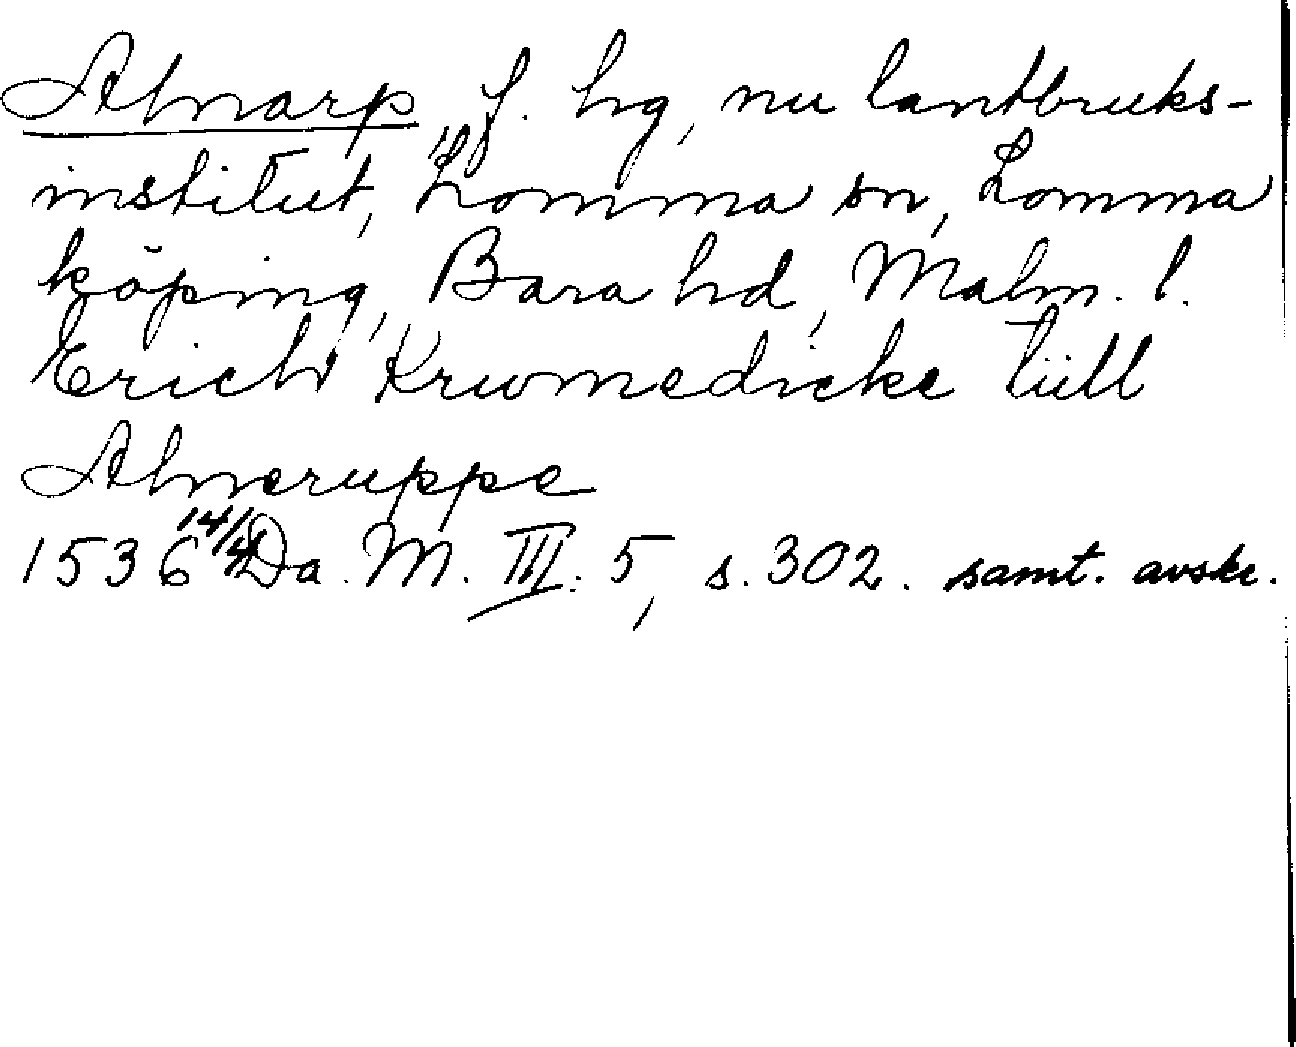 Alnarp, f. hg, nu lantbruks-
institut, Lomma sn, Lomma
köping, Bara hd, Malm. l.
Erich Krwmedicke tiill
Alneruppe
1536 14/4 Da. M. III. 5, s. 302. samt. avskr.